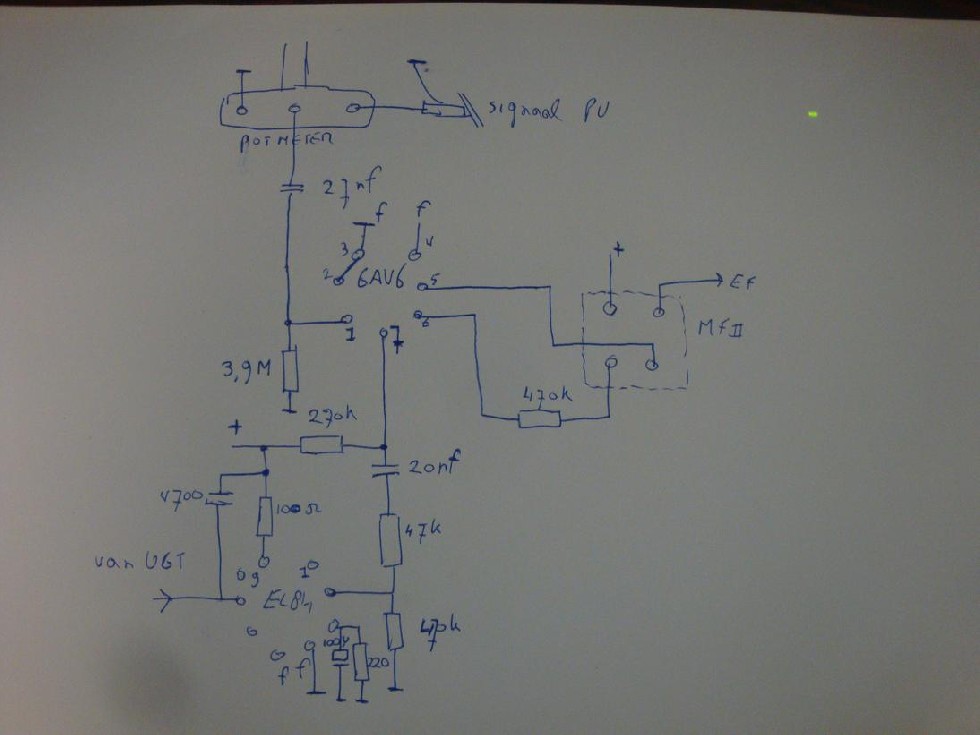 signaal PU
POTMETER
27nf
f
f
3
4
2
6AV6
5
+
EF
1
7
6
MFII
3,9M
470k
270k
+
20nf
4700
100Ω
47k
van UGT
9
10
EL84
470k
100µ
220
f f